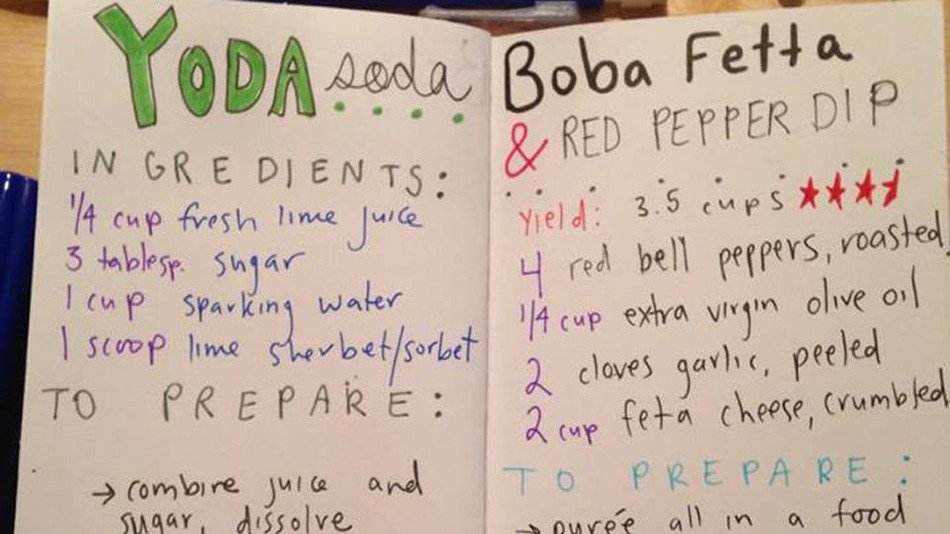 YODA soda
INGREDIENTS:
1/4 cup fresh lime juice
3 tablesp. sugar
1 cup sparking water
1 scoop lime sherbet/sorbet
TO PREPARE:
→ combine juice and
sugar, dissolve
Boba Fetta
& RED PEPPER DIP
Yield: 3.5 cups
4 red bell peppers, roasted
1/4 cup extra virgin olive oil
2 cloves garlic, peeled
2 cup feta cheese, crumbled
TO PREPARE:
→ purée all in a food